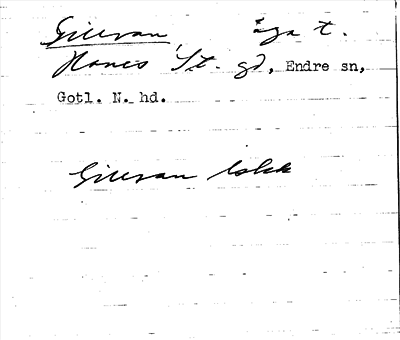 Gillran, äga t.
Hanes St. gd, Endre sn,
Gotl. N. hd.
Gillran